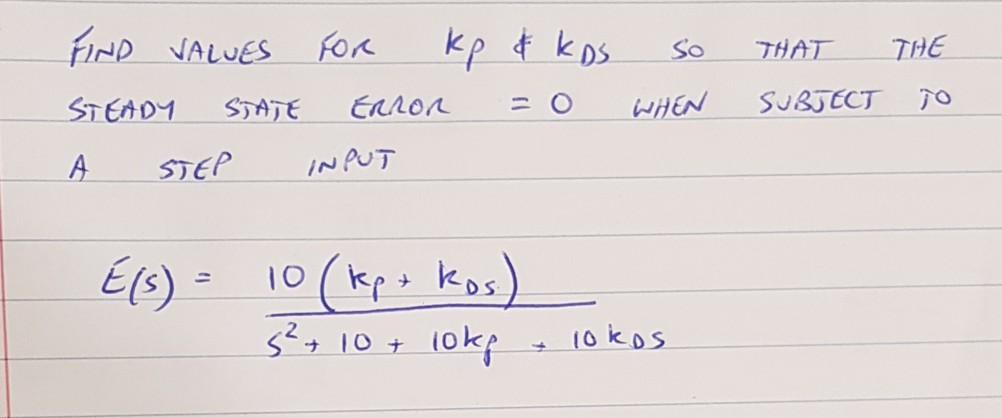 FIND VALUES FOR kp & kDS SO THAT THE
STEADY STATE ERROR = 0 WHEN SUBJECT TO
A STEP INPUT
E(s) = 10 (kp + kDS)
s² + 10 + 10kp + 10kDS